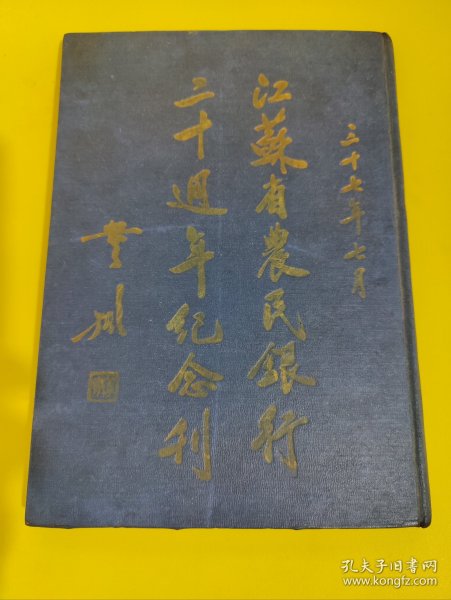 三十七年七月
江蘇省農民銀行
二十週年纪念刊
孔夫子旧书网
www.kongfz.com